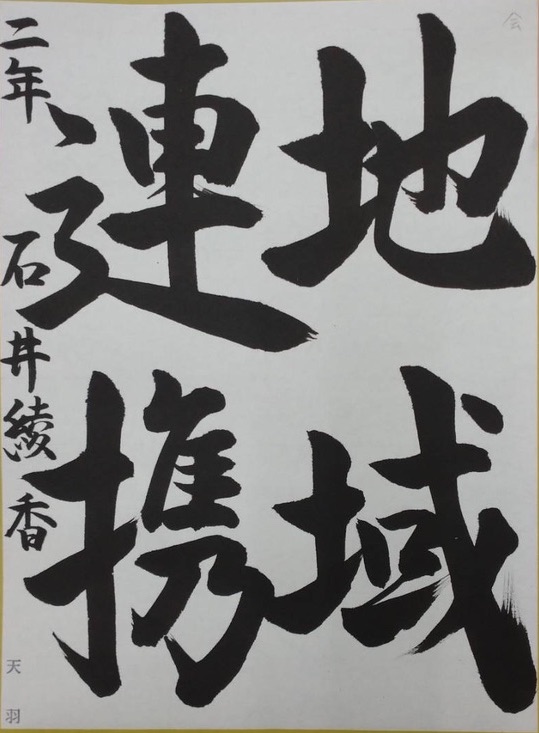 会
地域
連携
二年 石井綾香
天羽